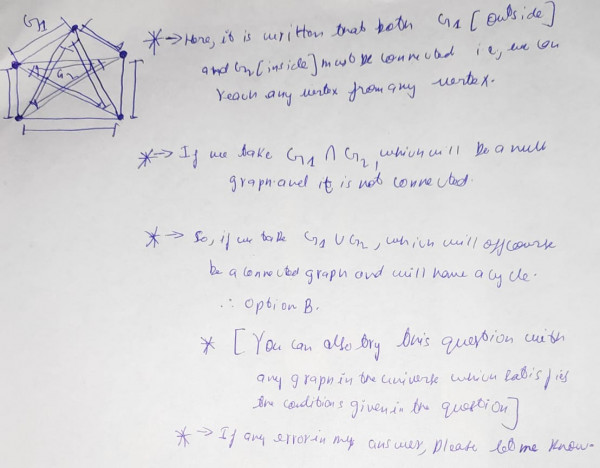 G1
G2
* → Here, it is written that both G1 [outside]
and G2 [inside] must be connected i.e, we can
reach any vertex from any vertex.
* → If we take G1 ∩ G2, which will be a null
graph and it is not connected.
* → So, if we take G1 ∪ G2, which will offcourse
be a connected graph and will have a cycle.
∴ Option B.
* [You can also try this question with
any graph in the universe which satisfies
the conditions given in the question]
* → If any error in my answer, please let me know.